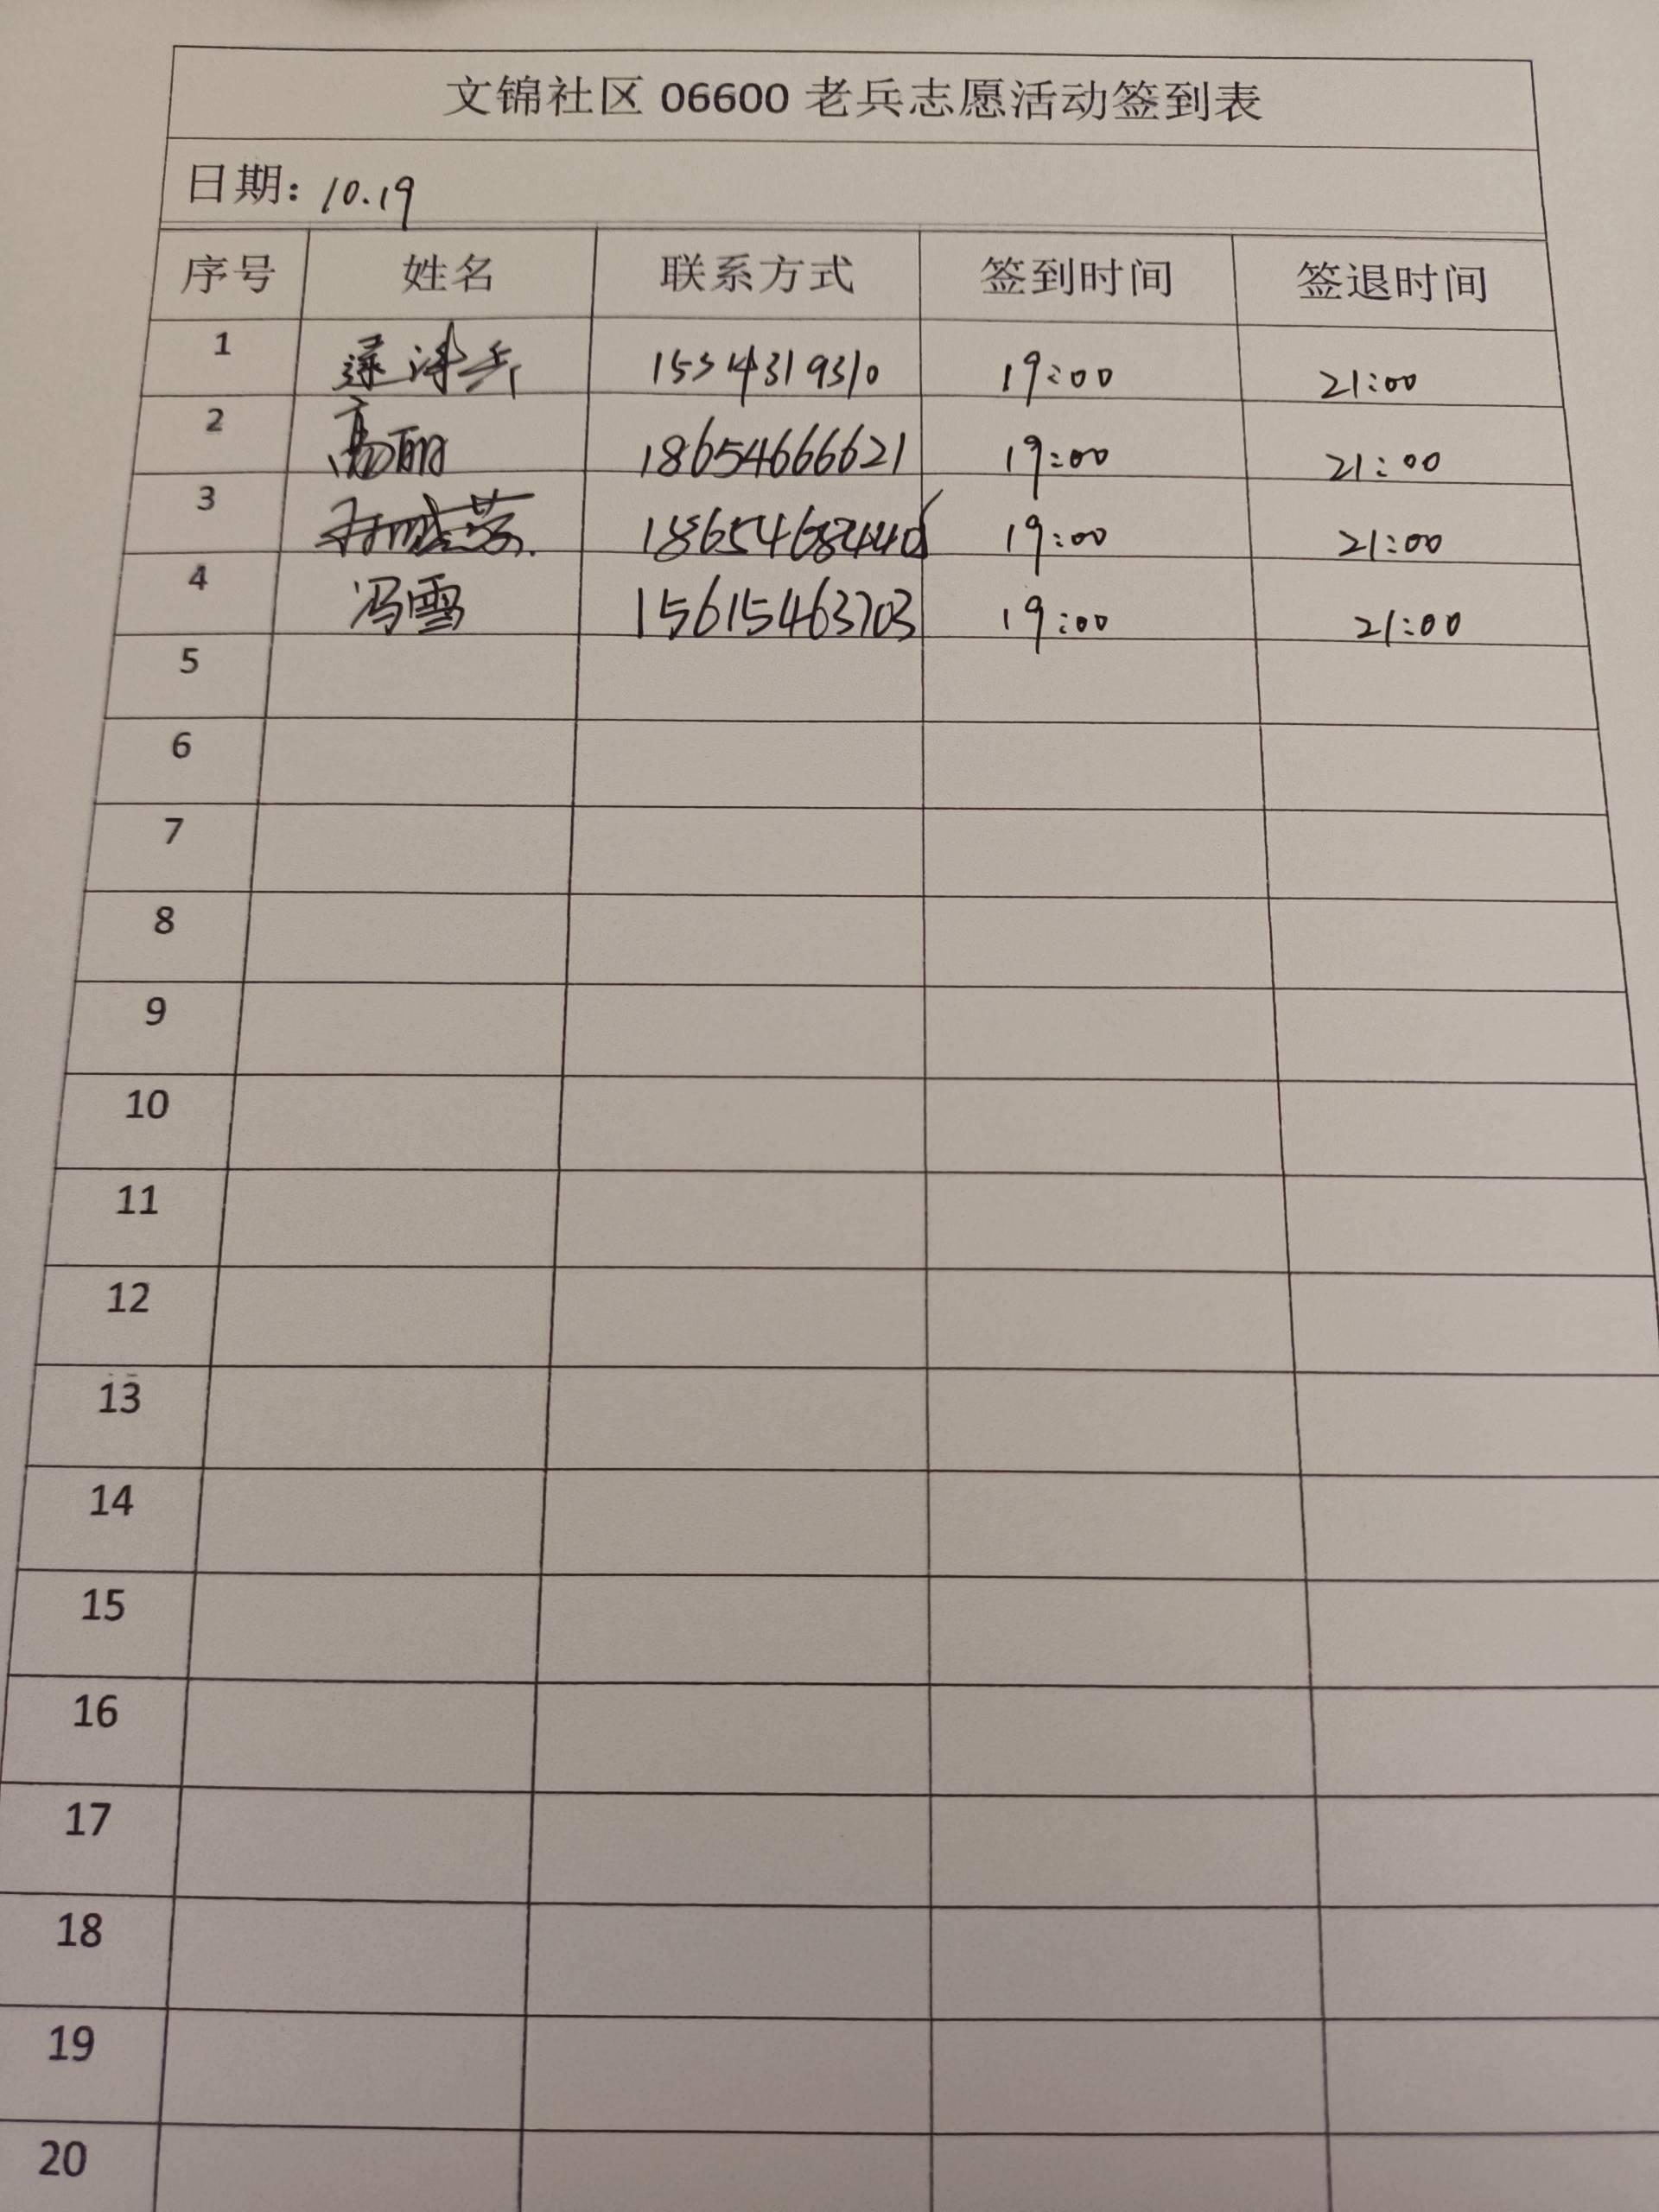 文锦社区 06600 老兵志愿活动签到表
日期: 10.19
序号 姓名 联系方式 签到时间 签退时间
1 1534319310 19:00 21:00
2 高丽 18654666621 19:00 21:00
3 19:00 21:00
4 冯雪 15615463703 19:00 21:00
5
6
7
8
9
10
11
12
13
14
15
16
17
18
19
20